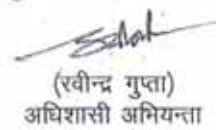 (रवीन्द्र गुप्ता)
अधिशासी अभियन्ता